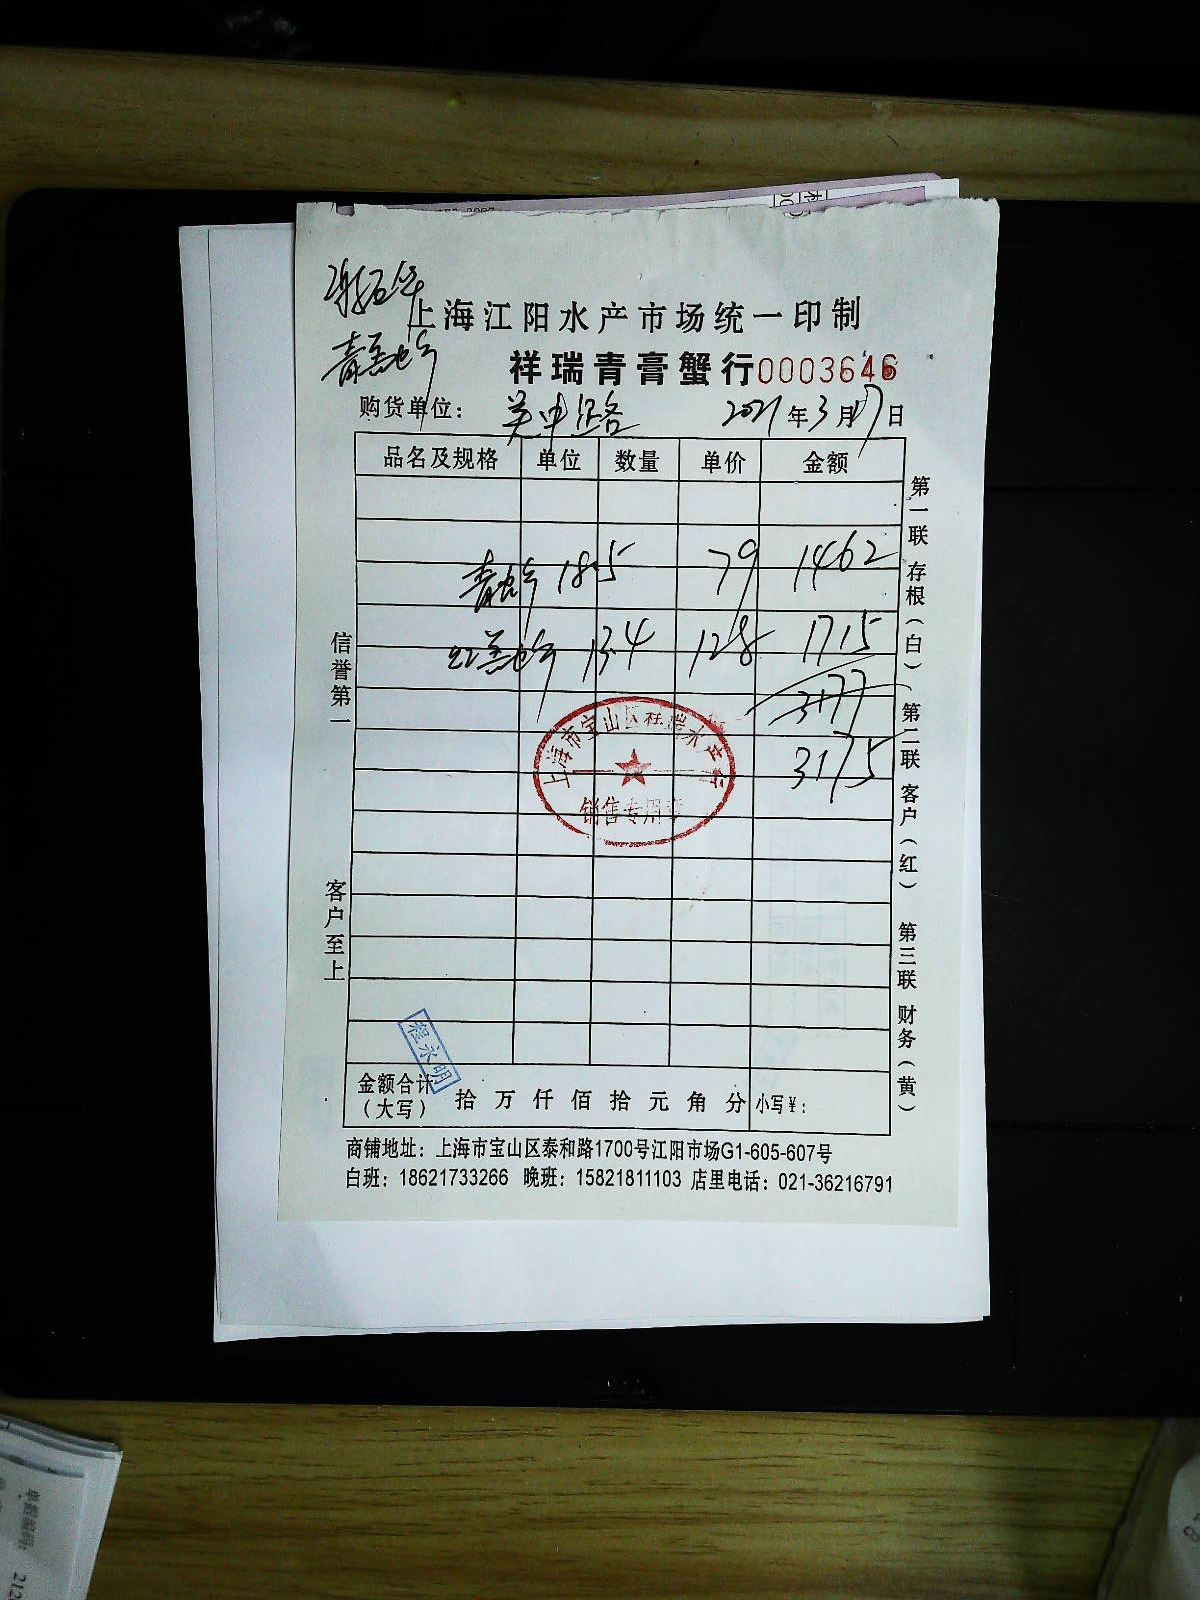 上海江阳水产市场统一印制
祥瑞青膏蟹行0003646
购货单位： 2021年3月17日
品名及规格 单位 数量 单价 金额
青 18.5 79 1462
红膏 13.4 128 1715
3177
3175
上海市宝山区祥瑞水产行
销售专用章
信誉第一
客户至上
第一联 存根（白）
第二联 客户（红）
第三联 财务（黄）
程永明
金额合计
（大写） 拾 万 仟 佰 拾 元 角 分 小写¥：
商铺地址：上海市宝山区泰和路1700号江阳市场G1-605-607号
白班：18621733266 晚班：15821811103 店里电话：021-36216791